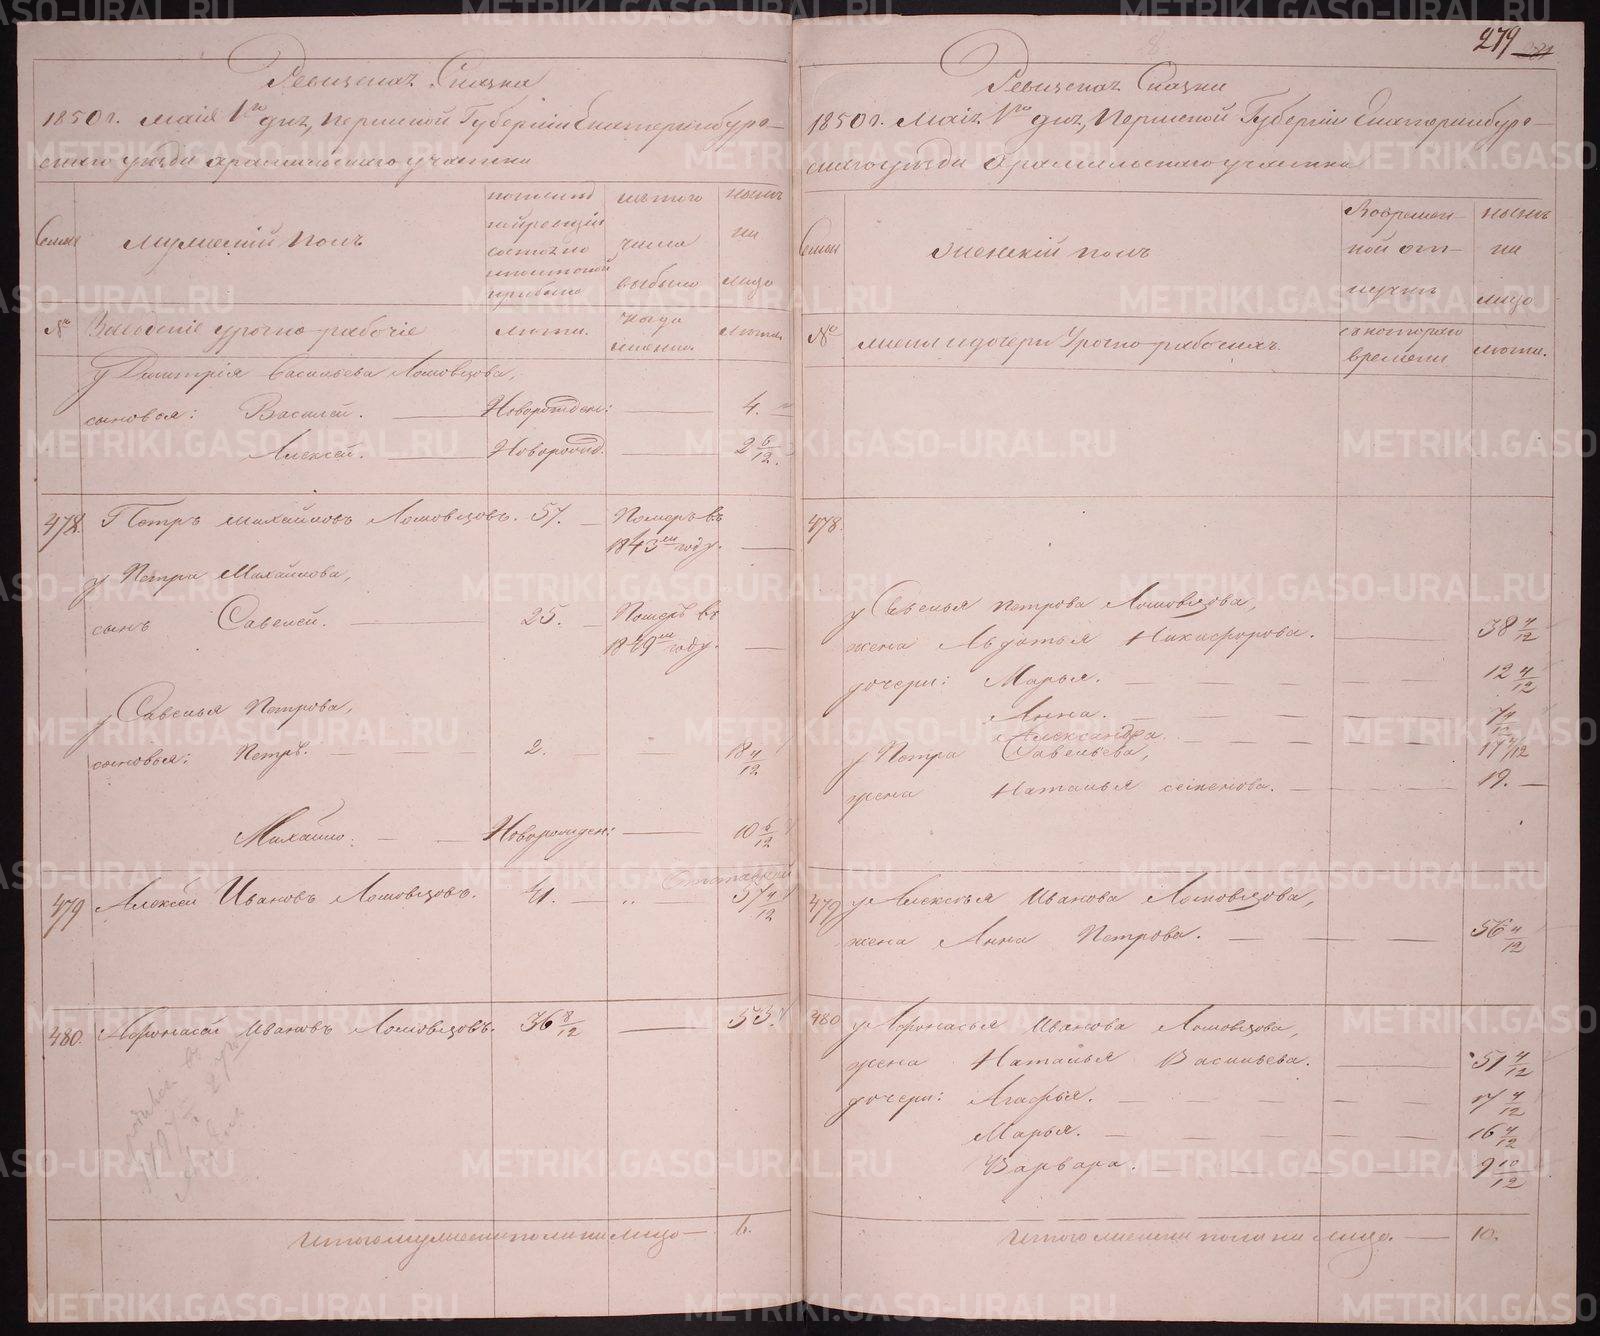 279
Ревизская Сказка
1850 г. Маія 1го дня, Пермской Губерніи Екатеринбург-
скаго уезда Арамильскаго участка
Семьи
Мужескій полъ
по последней ревизіи состояло и после того прибыло
изъ того числа выбыло
ныне на лицо
№
Заводскіе урочно-рабочіе
лета.
когда именно.
лета.
у Дмитрія Васильева Ломовцова,
сыновья: Василей. Новорожден: 4.
Алексей. Новорожд. 2 6/12.
478. Петръ Михайловъ Ломовцовъ. 57. Померъ въ
1843м году.
у Петра Михайлова,
сынъ Савелей. 25. Померъ въ
1849м году.
у Савелья Петрова,
сыновья: Петръ. 2. 18 4/12
Михайло. Новорожден: 10 6/12
479 Алексей Ивановъ Ломовцовъ. 41. „ Отставной 57 4/12
480. Афонасей Ивановъ Ломовцовъ. 36 8/12 53.
Итого мужеска пола на лицо 6.
Ревизская Сказка
1850 г. Маія 1го дня, Пермской Губерніи Екатеринбург-
скаго уезда Арамильскаго участка
Семьи
Женскій полъ
Во временной отлучке
ныне на лицо
№
жены и дочери Урочно-рабочихъ.
съ котораго времени
лета.
478.
у Савелья Петрова Ломовцова,
жена Авдотья Никифорова. 38 4/12
дочери: Марья. 12 4/12
Анна. 7 4/12
Александра. 1 7/12
у Петра Савельева,
жена Наталья Семенова. 19.
479 у Алексея Иванова Ломовцова,
жена Анна Петрова. 56 4/12
480 у Афонасья Иванова Ломовцова,
жена Наталья Васильева. 51 4/12
дочери: Агафья. 17 4/12
Марья. 16 4/12
Варвара. 9 10/12
Итого женска пола на лицо. 10.
METRIKI.GASO-URAL.RU